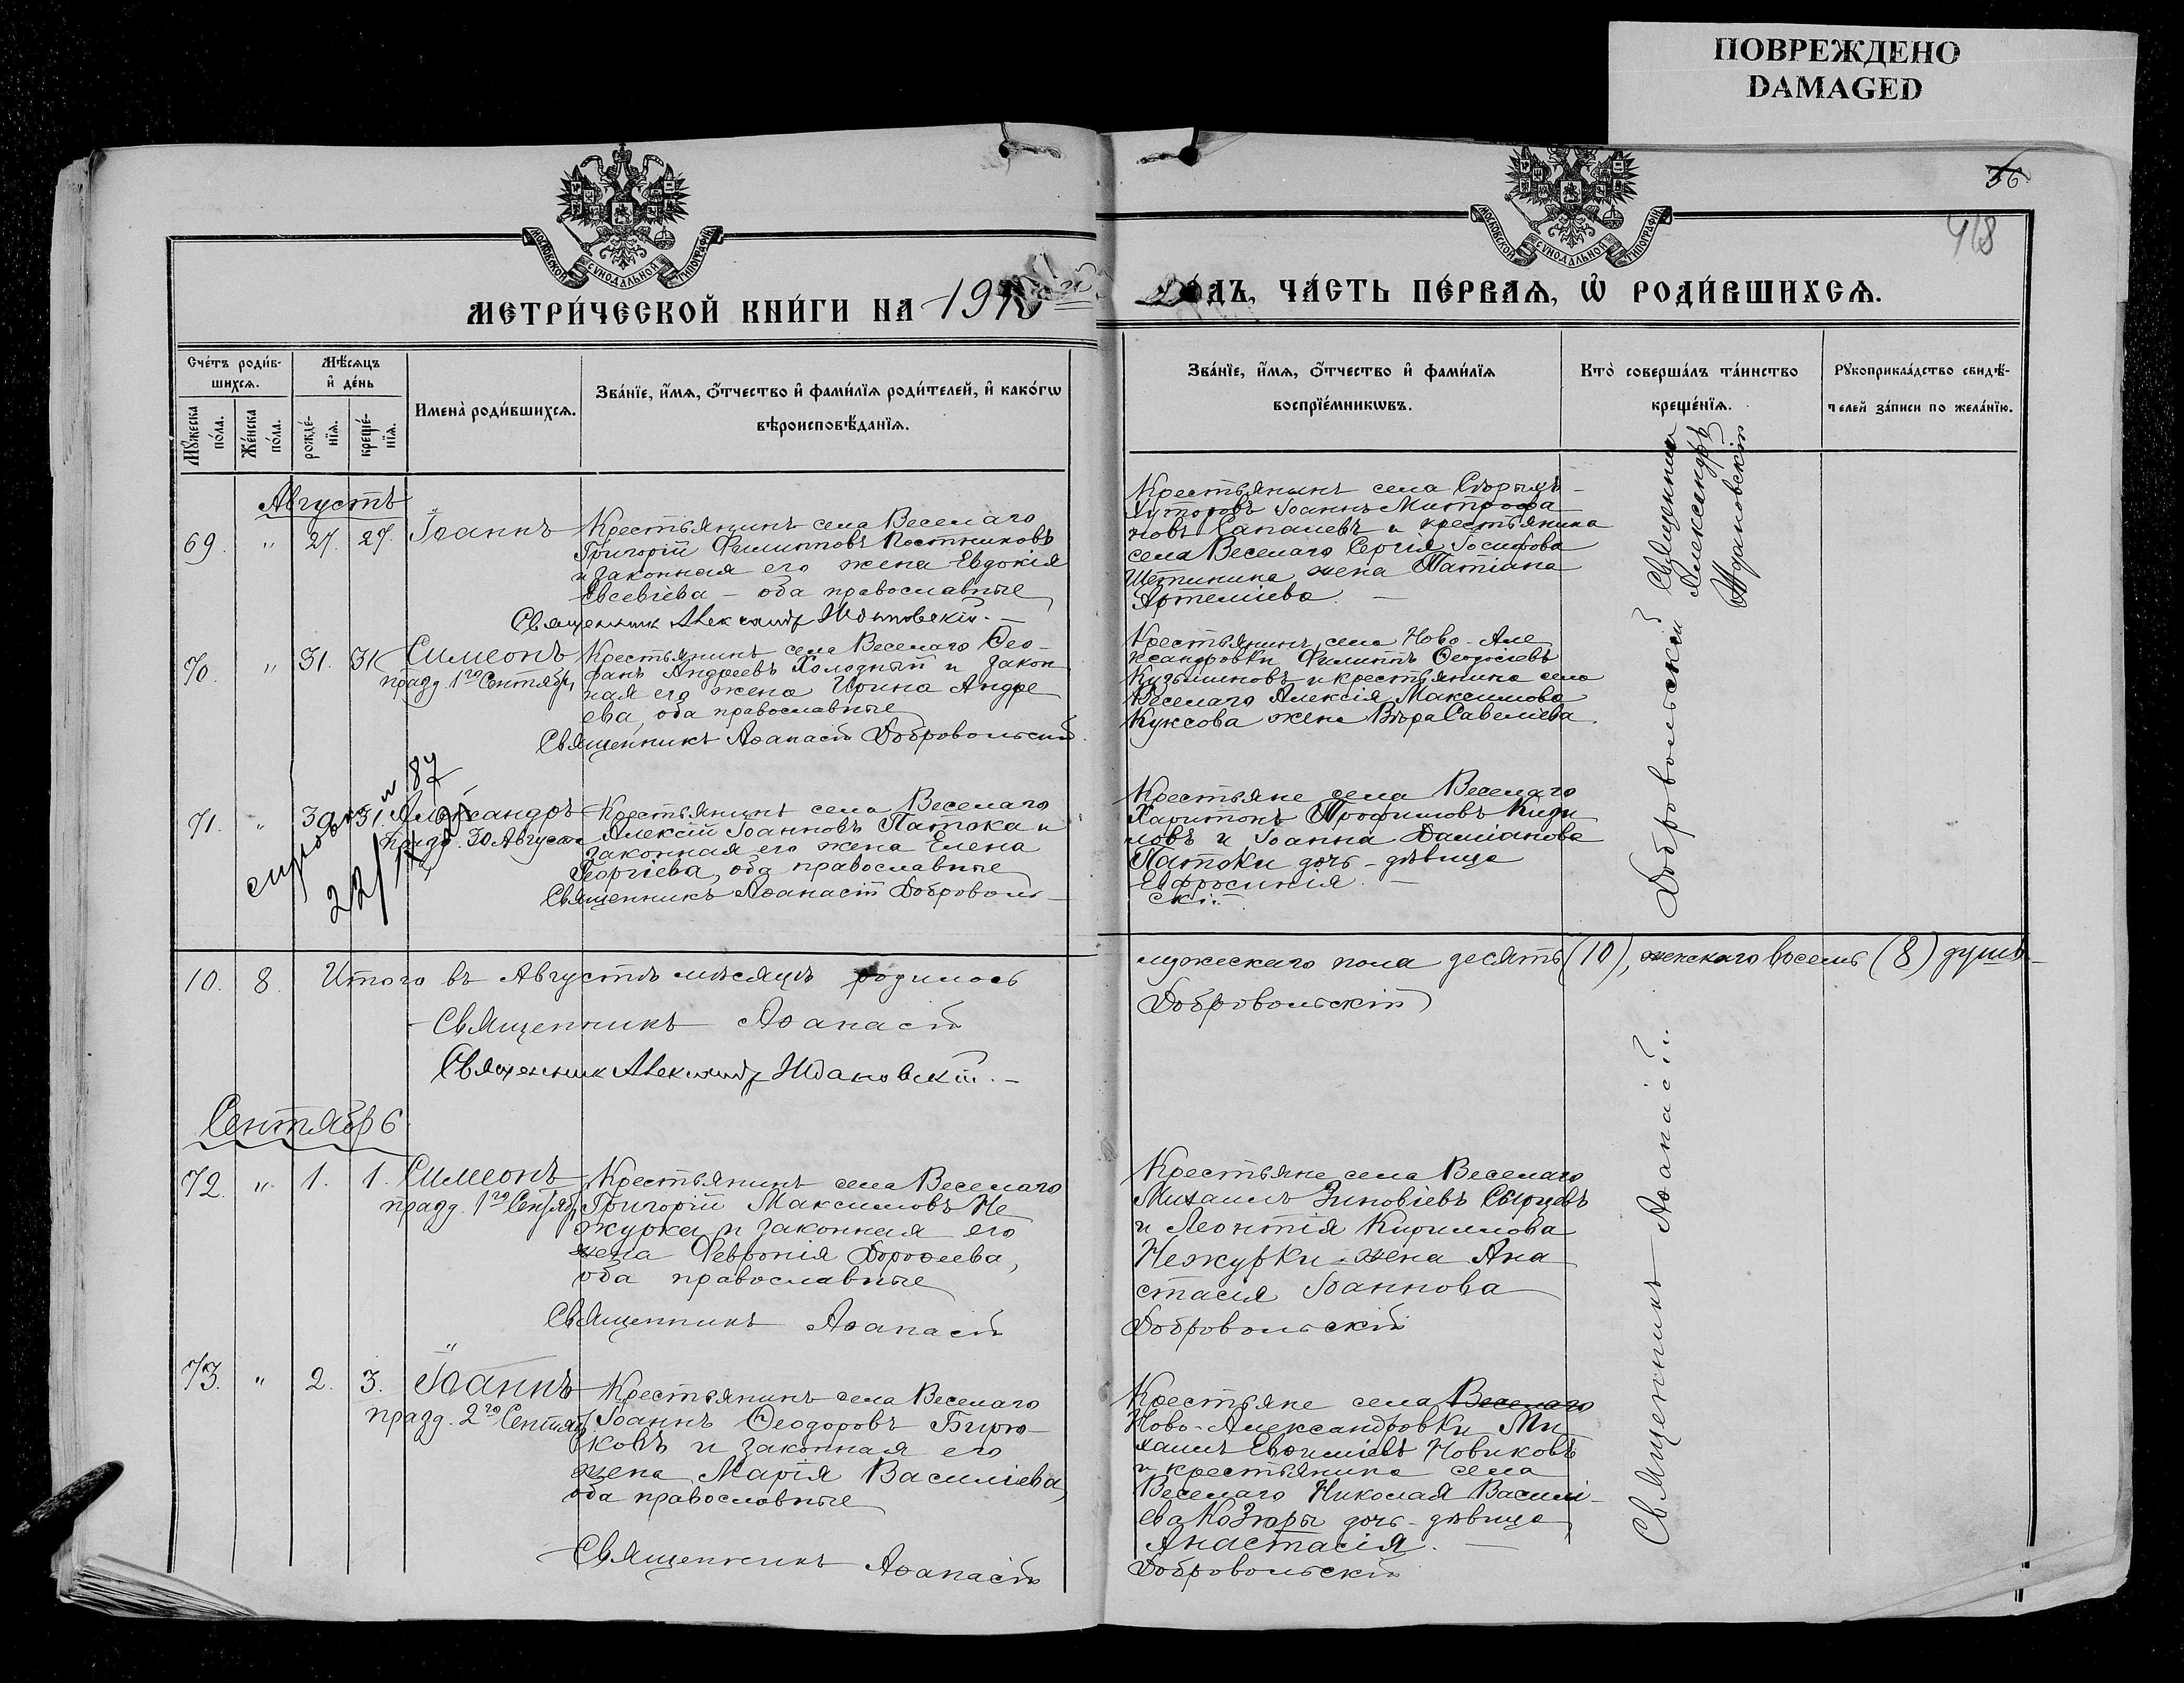 ПОВРЕЖДЕНО
DAMAGED
56
418
МОСКОВСКОЙ СѴНОДАЛЬНОЙ ТИПОГРАФІИ
МОСКОВСКОЙ СѴНОДАЛЬНОЙ ТИПОГРАФІИ
МЕТРИ́ЧЕСКОЙ КНИ́ГИ НА 1910
ГО́ДЪ, ЧА́СТЬ ПЕ́РВАѦ, Ѡ҆ РОДИ́ВШИХСѦ.
Сче́тъ роди́в-
шихсѧ.
Мѣ́сѧцъ
и҆ де́нь
Мꙋ́жеска по́ла.
Же́нска по́ла.
рожде́-
нїѧ.
креще́-
нїѧ.
Имена̀ роди́вшихсѧ.
Зва́нїе, и҆́мѧ, ѻ҆́тчество и҆ фами́лїѧ роди́телей, и҆ како́гѡ
вѣроисповѣ́данїѧ.
Зва́нїе, и҆́мѧ, ѻ҆́тчество и҆ фами́лїѧ
воспрїе́мникѡвъ.
Кто̀ соверша́лъ та́инство
креще́нїѧ.
Рꙋкоприкла́дство свидѣ́-
телей за́писи по жела́нїю.
Августъ
69. " 27 27. Іоаннъ
Крестьянинъ села Веселаго
Григорій Филипповъ Постниковъ
и законная его жена Евдокія
Евсевіева – оба православные
Священникъ Александръ Ждановскій. –
Крестьянинъ села
Хуторовъ Іоаннъ Митрофа
новъ Сапалевъ и крестьянина
села Веселаго Сергія Іосифова
Щетинина жена Татіана
Артеміева. –
Священникъ
Александръ
Ждановскій
70. " 31. 31 Симеонъ
празд. 1го Сентябр
Крестьянинъ села Веселаго Ѳео-
фанъ Андреевъ Холодный и закон
ная его жена Ирина Андре
ева, оба православные
Священникъ Аѳанасій Добровольскій.
Крестьянинъ села Ново-Але
ксандровки Филиппъ Ѳеодосіевъ
Кузьминовъ и крестьянина села
Веселаго Алексія Максимова
Куксова жена Вѣра Савеліева.
71. " 30 31 Александръ
празд. 30 Августа
и 87
22/
Крестьянинъ села Веселаго
Алексій Іоанновъ Патока и
законная его жена Елена
Георгіева, оба православные
Священникъ Аѳанасій Доброволь-
Крестьяне села Веселаго
Харитонъ Трофимовъ
и Іоанна Даміанова
Патоки дочь-дѣвица
Евфросинія. –
скій.
10. 8. Итого въ Августѣ мѣсяцѣ родилось
мужескаго пола десять (10), женскаго восемь (8) душъ –
Священникъ Аѳанасій
Добровольскій
Священникъ Александръ Ждановскій. –
Сентябрь
72. " 1. 1. Симеонъ
празд. 1го Сентяб
Крестьянинъ села Веселаго
Григорій Максимовъ Не
журка и законная его
жена Февронія Дороѳеева,
оба православные
Священникъ Аѳанасій
Крестьяне села Веселаго
Михаилъ Зиновіевъ Сырцевъ
и Леонтія Кириллова
Нежурки жена Ана
стасія Іоаннова
Добровольскій
73. " 2. 3. Іоаннъ
празд. 2го Сентяб
Крестьянинъ села Веселаго
Іоаннъ Ѳеодоровъ Бирю-
ковъ и законная его
жена Марія Василіева,
оба православные
Священникъ Аѳанасій
Крестьяне села Веселаго
Ново-Александровки Ми
хаилъ Евѳиміевъ Новиковъ
и крестьянина села
Веселаго Николая Василі-
ева Козюры дочь-дѣвица
Анастасія. –
Добровольскій
Священникъ Аѳанасій
Добровольскій